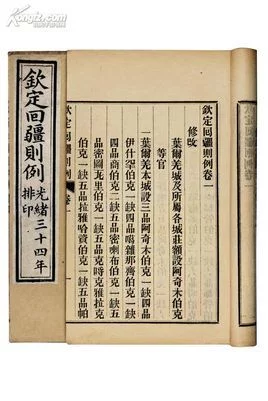 Kongfz.com
欽定回疆則例
光緒三十四年
排印
欽定回疆則例卷一
修改
一葉爾羌本城及所屬各城莊額設阿奇木伯克
等官
一葉爾羌本城設三品阿奇木伯克一缺四品
伊什罕伯克一缺四品噶雜那齊伯克一缺四
品商伯克二缺五品密喇布伯克一缺五
品密圖瓦里伯克一缺五品克呼克雅喇克
伯克一缺五品拉雅哈資伯克一缺五品帕
欽定回疆則例
卷一